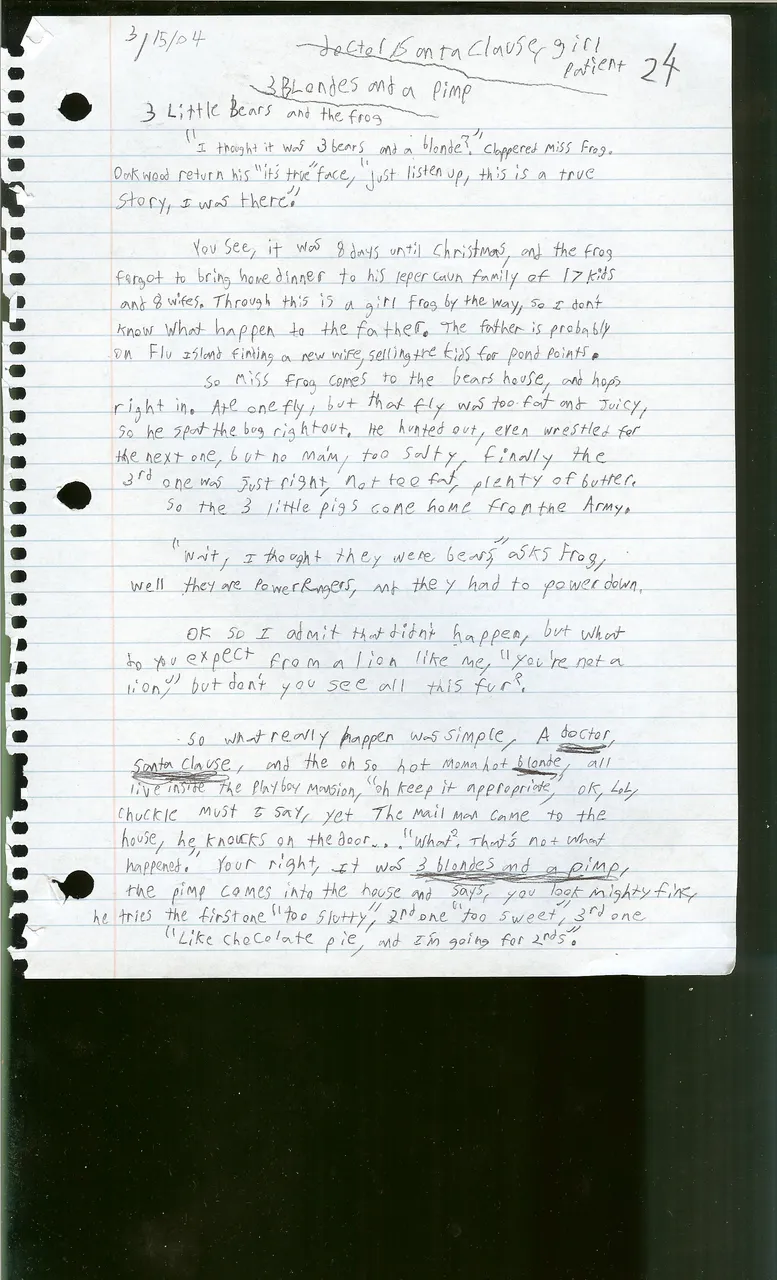 3/15/04
doctor, Santa Clause, girl
patient 24
3 Blondes and a pimp
3 Little Bears and the frog
"I thought it was 3 bears and a blonde?" Clappered Miss Frog.
Oakwood return his "it's true" face, "just listen up, this is a true
story, I was there."
You see, it was 8 days until Christmas, and the frog
forgot to bring home dinner to his leper caun family of 17 kids
and 8 wifes. Through this is a girl frog by the way, so I don't
know what happen to the father. The father is probably
on Flu Island finding a new wife, selling the kids for pond points.
So Miss Frog comes to the bears house, and hops
right in. Ate one fly, but that fly was too fat and juicy,
so he spat the bug right out. He hunted out, even wrestled for
the next one, but no mam, too salty, finally the
3rd one was just right, not too fat, plenty of butter.
So the 3 little pigs come home from the Army.
"Wait, I thought they were bears," asks Frog,
well they are PowerRangers, and they had to power down.
OK so I admit that didn't happen, but what
do you expect from a lion like me, "you're not a
lion," but don't you see all this fur?
So what really happen was simple, A doctor,
Santa Clause, and the oh so hot Moma hot blonde, all
live inside the Playboy Mansion, "oh keep it appropriate," ok, LoL,
chuckle must I say, yet The mail man came to the
house, he knoucks on the door... "What? That's not what
happened." Your right, it was 3 blondes and a pimp,
the pimp comes into the house and says, you look mighty fine,
he tries the first one "too slutty", 2nd one "too sweet", 3rd one
"Like chocolate pie, and I'm going for 2nds".